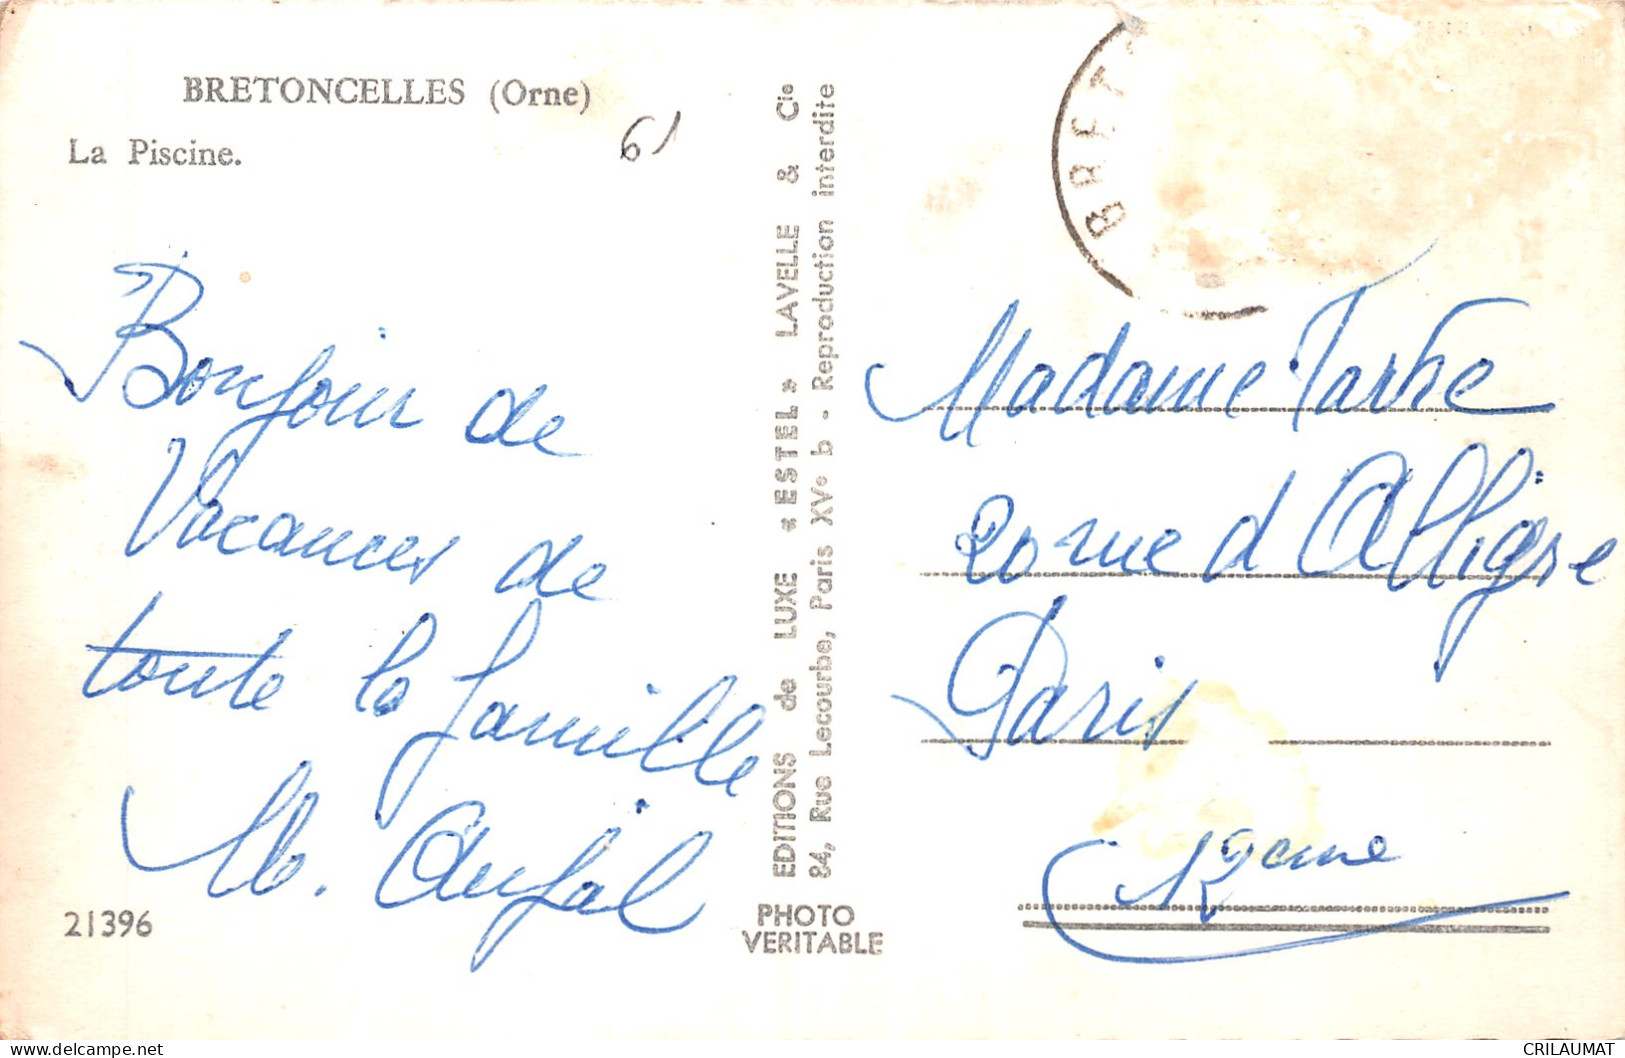 BRETONCELLES (Orne)
La Piscine.
61
Bonjour de
Vacances de
toute la famille
21396
EDITIONS de LUXE « ESTEL » LAVELLE & Cie
84, Rue Lecourbe, Paris XVe b - Reproduction interdite
PHOTO
VERITABLE
BRET
Madame
20 rue d Alligre
Paris
12eme
delcampe.net
CRILAUMAT